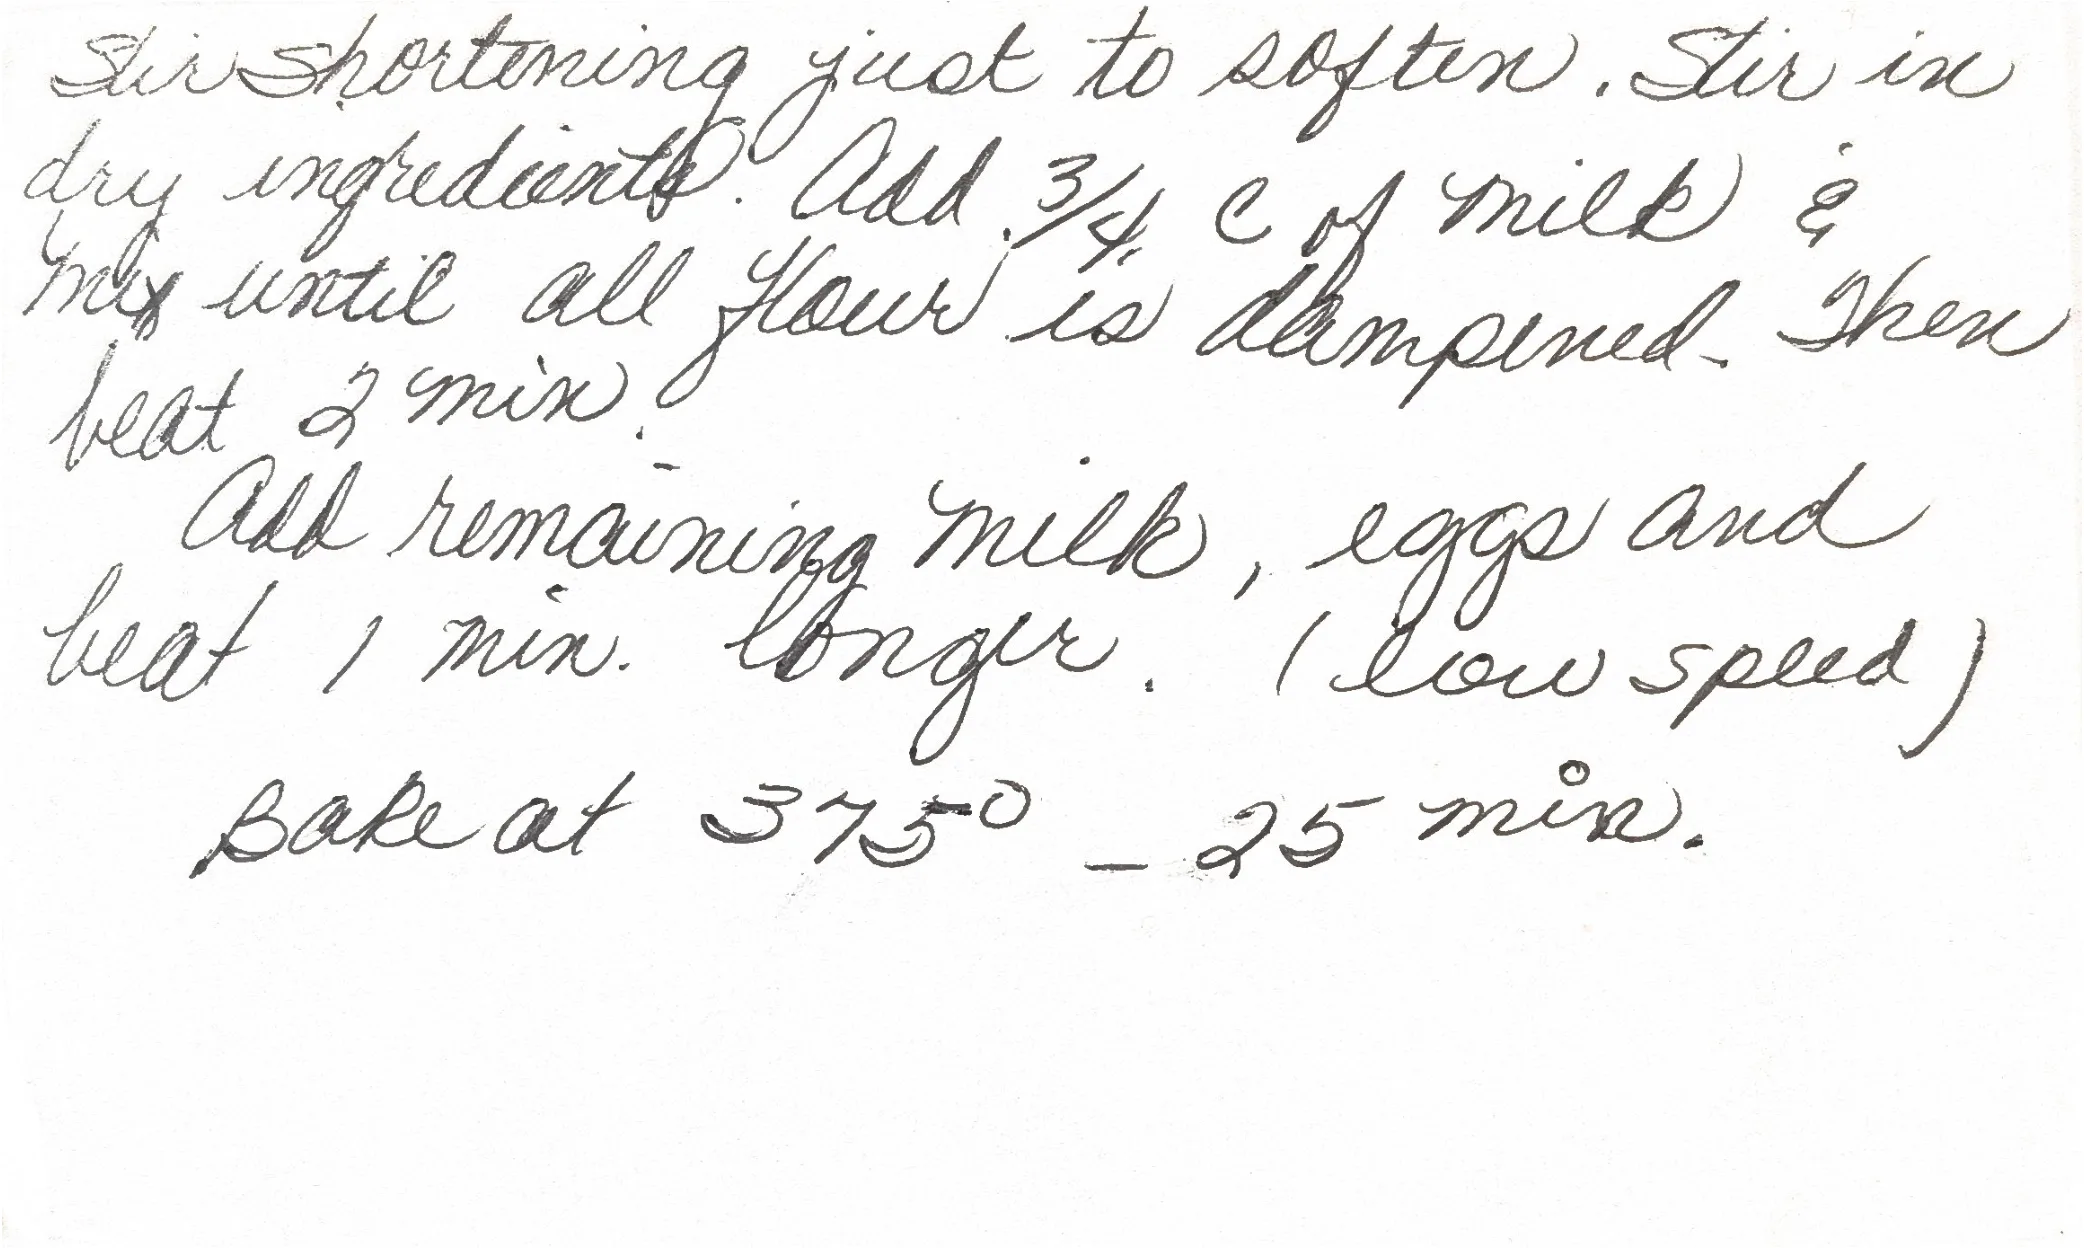 Stir shortening just to soften. Stir in
dry ingredients. Add 3/4 c of milk &
mix until all flour is dampened. Then
beat 2 min.
Add remaining milk, eggs and
beat 1 min. longer. (low speed)
Bake at 375° - 25 min.